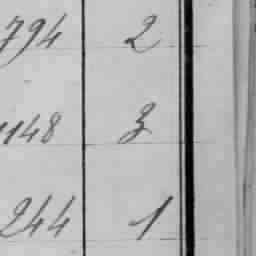 794 2
1148 3
244 1